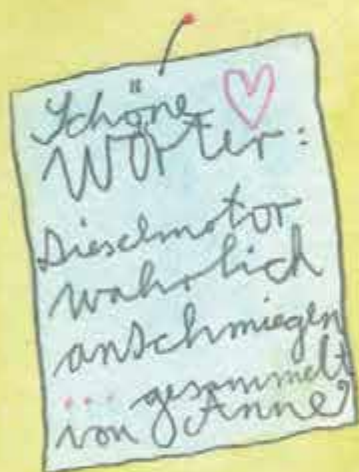 Schöne
Wörter:
Dieselmotor
wahrlich
anschmiegen
... gesammelt
von Anne